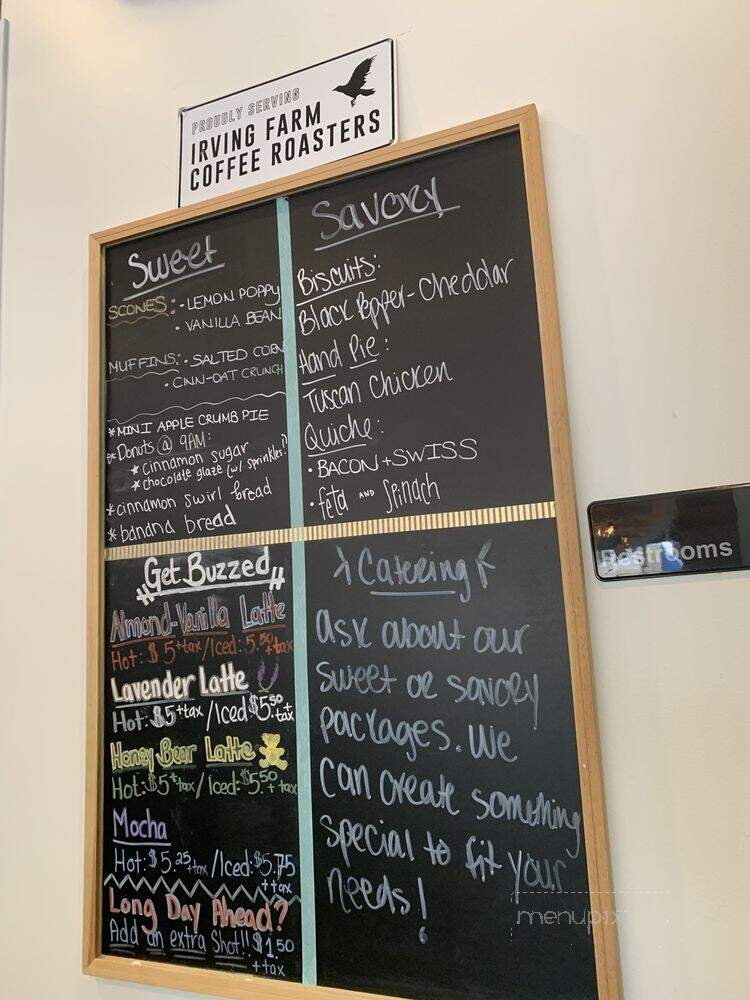 PROUDLY SERVING
IRVING FARM
COFFEE ROASTERS
Sweet
SCONES: • LEMON POPPY
• VANILLA BEAN
MUFFINS: • SALTED CORN
• CINN-OAT CRUNCH
* MINI APPLE CRUMB PIE
* Donuts @ 9AM:
* cinnamon sugar
* chocolate glaze (w/ sprinkles?)
* cinnamon swirl bread
* banana bread
Savory
Biscuits:
Black Pepper-Cheddar
Hand Pie:
Tuscan Chicken
Quiche:
• BACON + SWISS
• feta AND Spinach
Get Buzzed
Almond-Vanilla Latte
Hot: $5 +tax / Iced: 5.50 +tax
Lavender Latte
Hot: $5 +tax / Iced $5.50 + tax
Honey Bear Latte
Hot: $5 + tax / Iced: $5.50 + tax
Mocha
Hot: $5.25 +tax / Iced: $5.75 + tax
Long Day Ahead?
Add an extra Shot!! $1.50
+tax
Catering
Ask about our
sweet or savory
packages. We
can create something
special to fit your
needs!
Restrooms
menupix